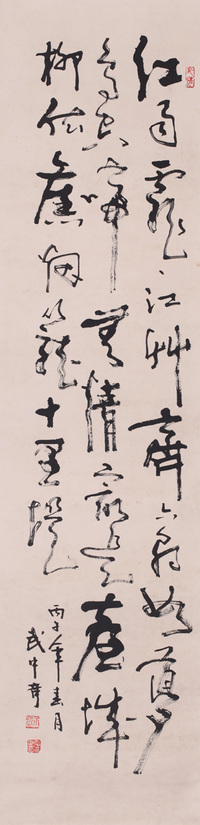 江雨霏〻江草齊六朝如夢
鳥空啼無情最是臺城
柳依舊烟籠十里堤
丙子年春月
武中奇